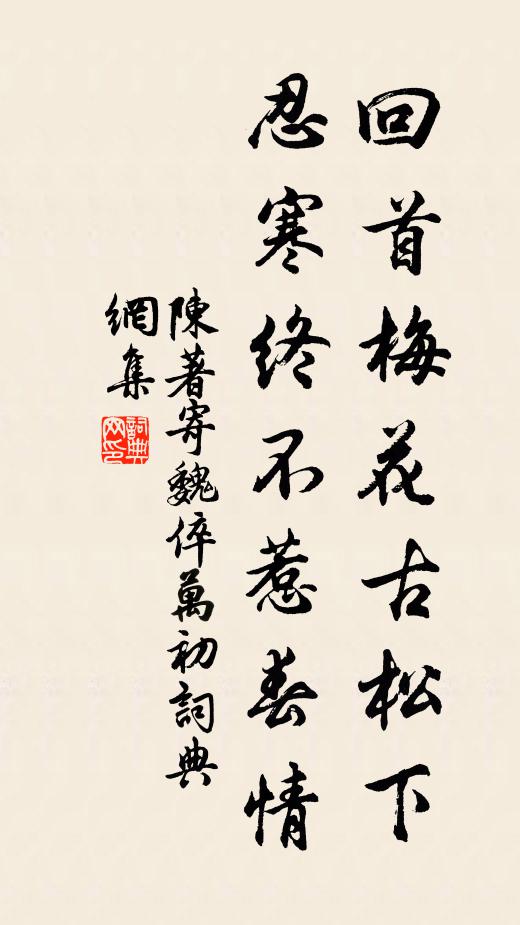 回首梅花古松下
忍寒終不惹春情
陳著寄魏倅萬初詞典
網集
詞典
网印